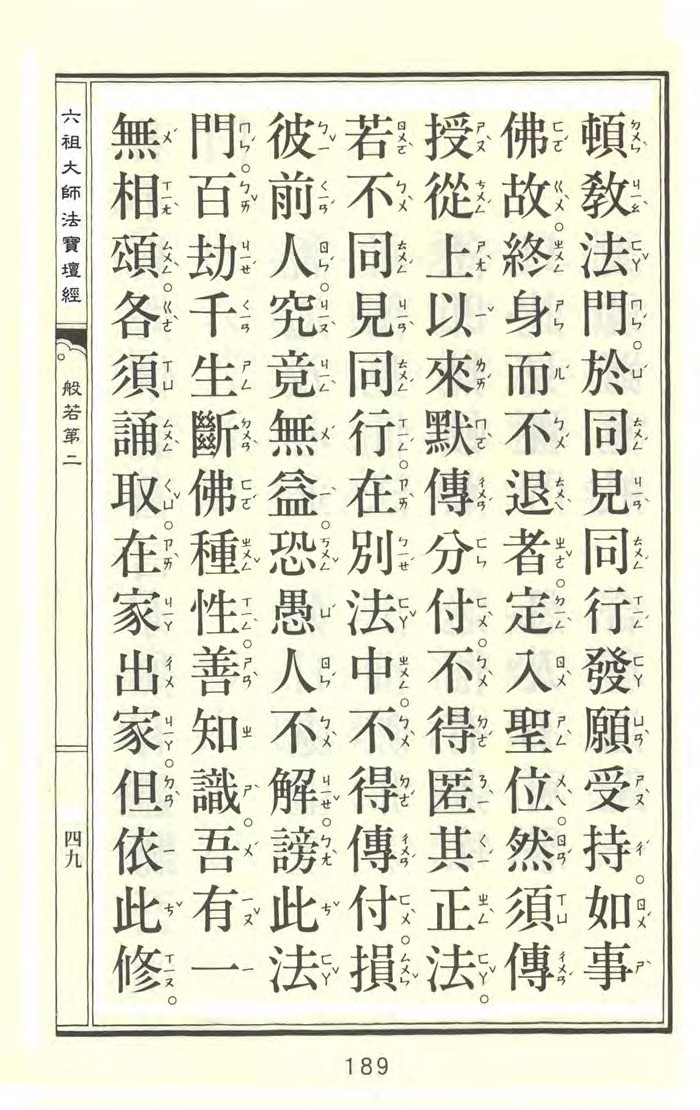 頓教法門。於同見同行發願受持。如事
佛故。終身而不退者。定入聖位。然須傳
授從上以來默傳分付。不得匿其正法。
若不同見同行。在別法中。不得傳付。損
彼前人。究竟無益。恐愚人不解。謗此法
門。百劫千生。斷佛種性。善知識。吾有一
無相頌。各須誦取。在家出家。但依此修。
六祖大師法寶壇經
般若第二
四九
189